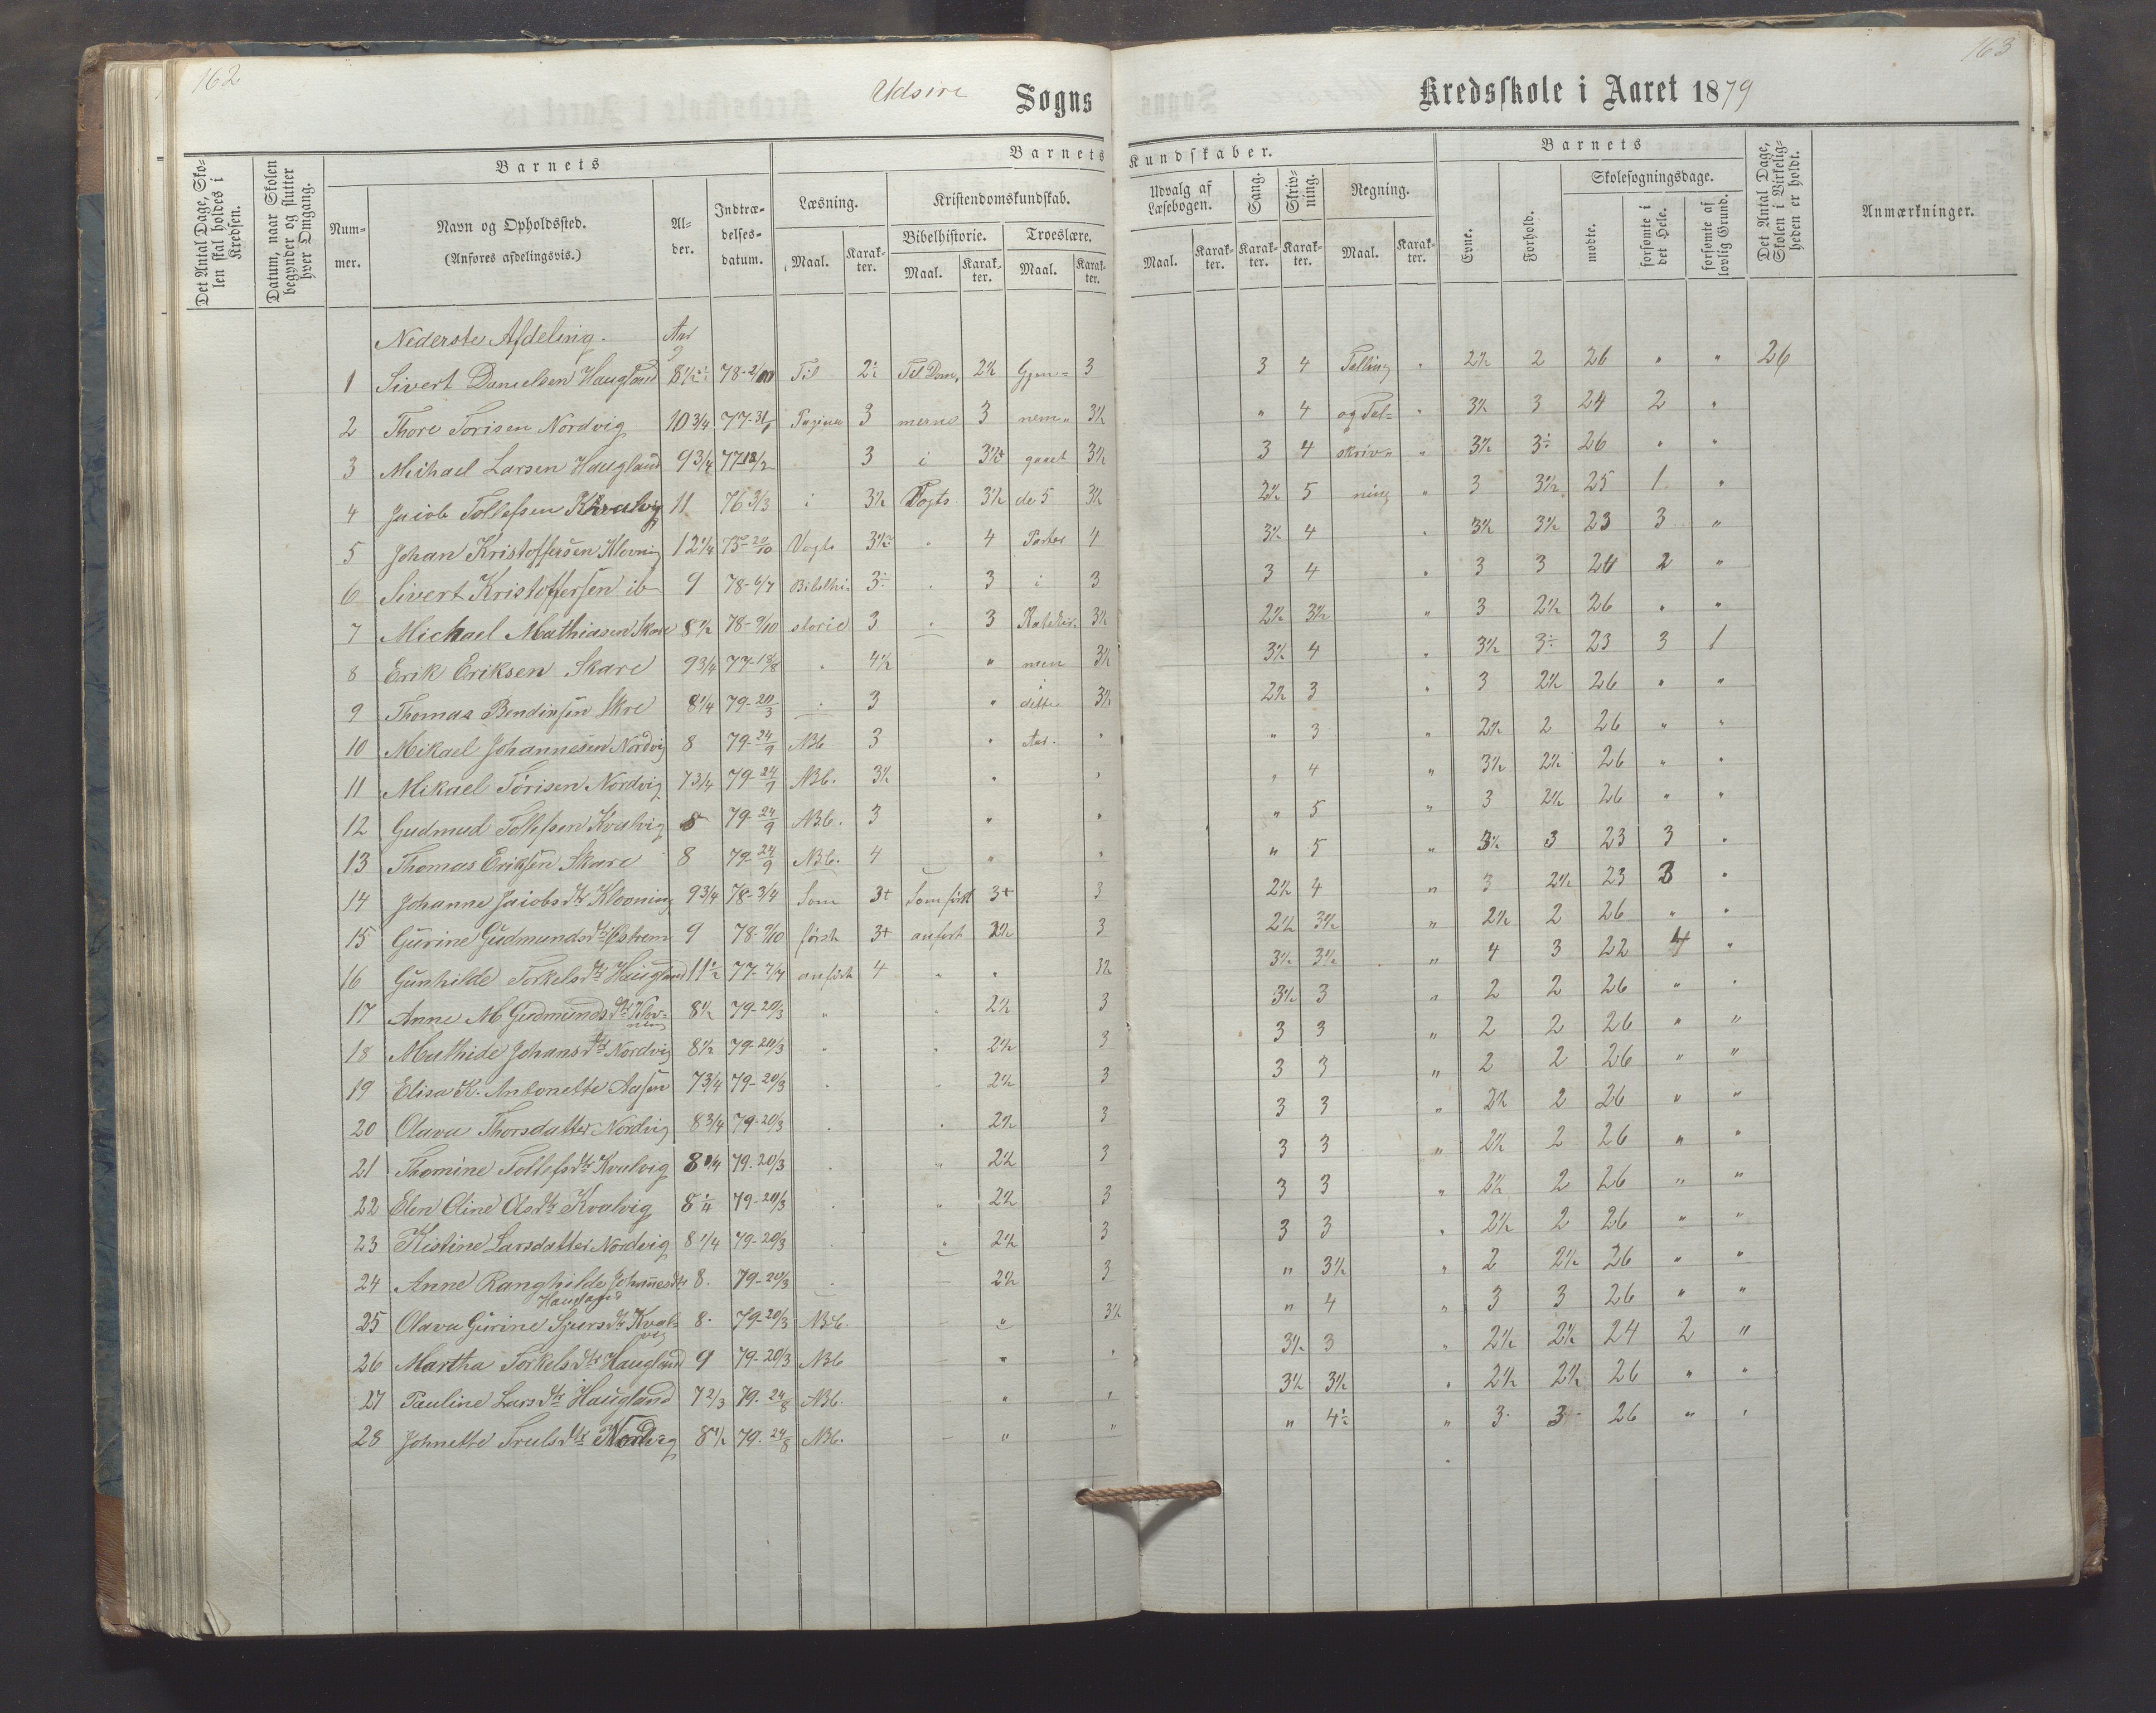 162
163
Udsire Sogns Kredsskole i Aaret 1879
Det Antal Dage, Skolen skal holdes i Kredsen.
Datum, naar Skolen begynder og slutter hver Omgang.
Barnets
Nummer.
Navn og Opholdssted.
(Anføres afdelingsvis.)
Alder.
Indtrædelsesdatum.
Barnets Kundskaber.
Læsning.
Maal. Karakter.
Kristendomskundskab.
Bibelhistorie. Troeslære.
Maal. Karakter. Maal. Karakter.
Udvalg af Læsebogen.
Maal. Karakter.
Sang. Karakter.
Skrivning. Karakter.
Regning.
Maal. Karakter.
Barnets
Evne. Forhold.
Skolesøgningsdage.
mødte. forsømte i det Hele. forsømte af lovlig Grund.
Det Antal Dage, Skolen i Virkeligheden er holdt.
Anmærkninger.
Nederste Afdeling. Aar
1 Sivert Danielsen Haugland 8½ Til 2½ Til Dom, 2½ Gjen- 3 3 4 Telling " 2½ 2 26 " " 26
2 Thore Torisen Nordvig 10 3/4 77-31/1 Pagina 3 merne 3 nem- 3½ " 4 og Tal- " 3½ 3 24 2 "
3 Michael Larsen Haugland 9 3/4 3 i 3½+ gaaet 3½ 3 4 skriv- " 3½ 3÷ 26 " "
4 Jacob Tollefsen Kvalvig 11 76 3/3 i 3½ Vogts 3½ de 5 3½ 2½ 5 ning " 3 3½ 25 1 "
5 Johan Kristoffersen Klovning 12 1/4 75-20/10 Vogts 3½ " 4 Parter 4 3½ 4 " 3½ 3½ 23 3 "
6 Sivert Kristoffersen ib 9 78-6/7 Bibelhi- 3÷ " 3 i 3 3 4 " 3 3 24 2 "
7 Michael Mathiasen Skare 8½ 78-9/10 storie 3 " 3 3½ 2½ 3½ " 3 2½ 26 " "
8 Erik Eriksen Skare 9 3/4 77-18/8 " 4½ " men 3½ 3½ 4 " 3½ 3÷ 23 3 1
9 Thomas Bendiksen Skre 8 1/4 79-20/3 " 3 " dette 3½ 2½ 3 " 3 2½ 26 " "
10 Mikael Johannesen Nordvig 8 79-24/9 ABC 3 " Aar. " " 3 " 2½ 2 26 " "
11 Mikael Torisen Nordvig 7 3/4 79-24/9 ABC. 3½ " " " 4 " 3½ 2½ 26 " "
12 Gudmud Tollefsen Kvalvig 8 79-24/9 ABC. 3 " " " 5 " 3 2½ 26 " "
13 Thomas Eriksen Skare 8 79-24/9 ABC. 4 " " " 5 " 3½ 3 23 3 "
14 Johanne Jacobsdtr Klovning 9 3/4 78-3/4 Som 3+ Som først 3+ 3 2½ 4 " 3 2½ 23 3 "
15 Gurine Gudmundsdtr Østrem 9 78-9/10 først 3+ anført 2½ 3 2½ 3½ " 2½ 2 26 " "
16 Gunhilde Torkelsdtr Haugland 11½ 77-7/7 anført 4 " " 3½ 3½ 3½ " 4 3 22 4 "
17 Anne M Gudmundsdtr Klovning 8½ 79-20/3 " " 2½ 3 3½ 3 " 2 2 26 " "
18 Mathide Johansdtr Nordvig 8½ 79-20/3 " " 2½ 3 3 3 " 2 2 26 " "
19 Elisa K. Antonette Aasen 7 3/4 79-20/3 " " 2½ 3 3 3 " 2 2 26 " "
20 Olava Thorsdatter Nordvig 8 3/4 79-20/3 " " 2½ 3 3 3 " 2½ 2 26 " "
21 Thomine Tollefsdtr Kvalvig 8 3/4 79-20/3 " " 2½ 3 3 3 " 2½ 2 26 " "
22 Elen Oline Olsdtr Kvalvig 8 1/4 79-20/3 " " 2½ 3 3 3 " 2½ 2 26 " "
23 Kistine Larsdatter Nordvig 8 1/4 79-20/3 " " 2½ 3 3 3 " 2½ 2 26 " "
24 Anne Ranghilde Johannesdtr Haugland 8. 79-20/3 " 2½ 3 " 3½ " 2 2½ 26 " "
25 Olava Gurine Sjursdtr Kvalvig 8. 79-20/3 ABC. " 3½ " 4 " 3 3 26 " "
26 Martha Torkelsdtr Haugland 9 79-20/3 ABC " " 3½ 3 " 2½ 2½ 24 2 "
27 Pauline Larsdtr Haugland 7 2/3 79-24/8 ABC. " " 3½ 3½ " 2½ 2½ 26 " "
28 Johnette Trulsdtr Nordvig 8½ 79-24/8 ABC. " " " 4½ " 3 3 26 " "